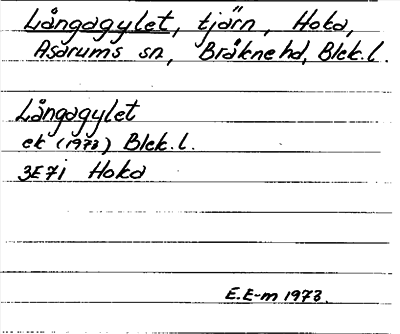 Långagylet, tjärn, Hoka,
Asarums sn, Bräkne hd, Blek.l.
Långagylet
ek (1973) Blek.l.
3E7i Hoka
E.E-m 1973.